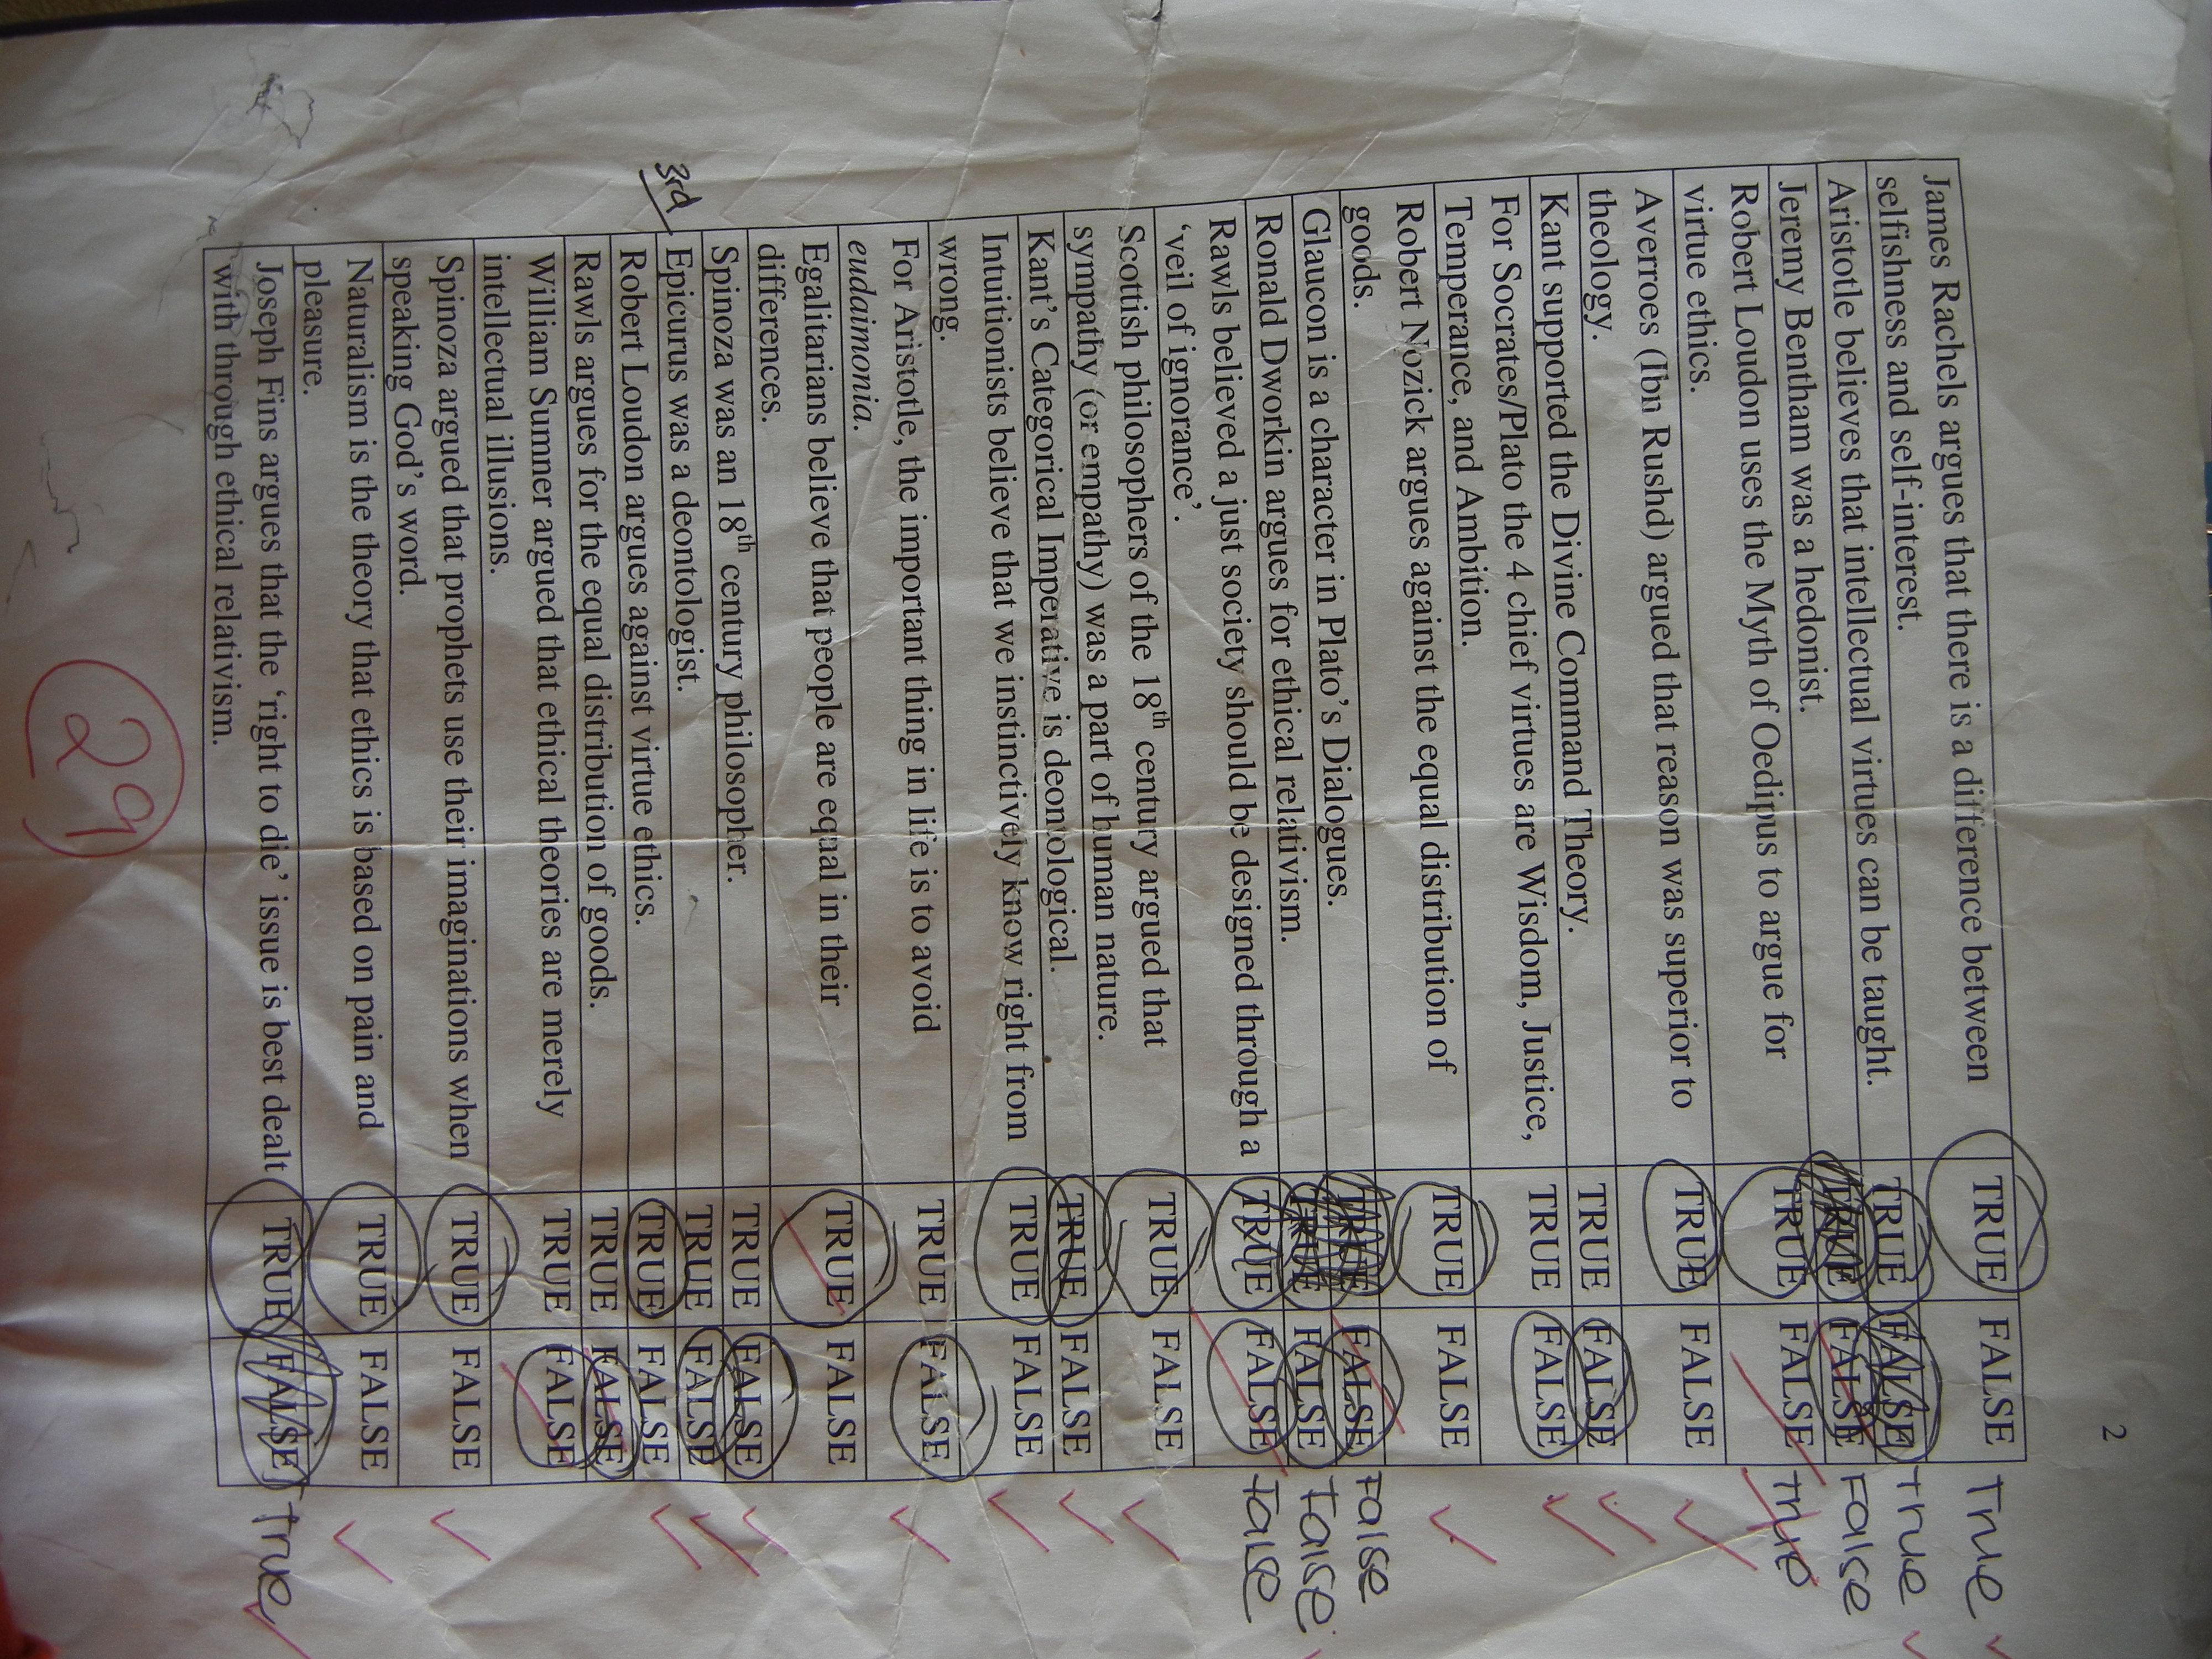 2
James Rachels argues that there is a difference between TRUE FALSE True
selfishness and self-interest.
Aristotle believes that intellectual virtues can be taught. TRUE FALSE True
Jeremy Bentham was a hedonist. TRUE FALSE False
Robert Loudon uses the Myth of Oedipus to argue for TRUE FALSE True
virtue ethics.
Averroes (Ibn Rushd) argued that reason was superior to TRUE FALSE
theology.
Kant supported the Divine Command Theory. TRUE FALSE
For Socrates/Plato the 4 chief virtues are Wisdom, Justice, TRUE FALSE
Temperance, and Ambition.
Robert Nozick argues against the equal distribution of TRUE FALSE
goods.
Glaucon is a character in Plato's Dialogues. TRUE FALSE False
Ronald Dworkin argues for ethical relativism. TRUE FALSE False
Rawls believed a just society should be designed through a TRUE FALSE False
‘veil of ignorance’.
Scottish philosophers of the 18th century argued that TRUE FALSE
sympathy (or empathy) was a part of human nature.
Kant's Categorical Imperative is deontological. TRUE FALSE
Intuitionists believe that we instinctively know right from TRUE FALSE
wrong.
For Aristotle, the important thing in life is to avoid TRUE FALSE
eudaimonia.
Egalitarians believe that people are equal in their TRUE FALSE
differences.
Spinoza was an 18th century philosopher. TRUE FALSE
3rd Epicurus was a deontologist. TRUE FALSE
Robert Loudon argues against virtue ethics. TRUE FALSE
Rawls argues for the equal distribution of goods. TRUE FALSE
William Sumner argued that ethical theories are merely TRUE FALSE
intellectual illusions.
Spinoza argued that prophets use their imaginations when TRUE FALSE
speaking God's word.
Naturalism is the theory that ethics is based on pain and TRUE FALSE
pleasure.
Joseph Fins argues that the ‘right to die’ issue is best dealt TRUE FALSE True
with through ethical relativism.
29